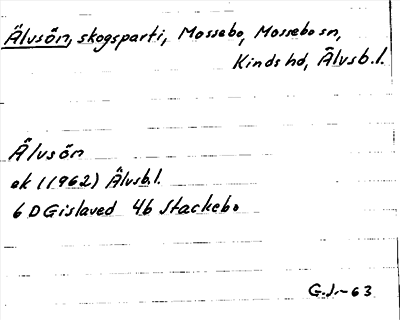 Älvsön, skogsparti, Mossebo, Mossebo sn,
Kinds hd, Älvsb. l.
Älvsön
ek (1962) Älvsb. l.
6 D Gislaved 4b Stackebo
G.J.-63